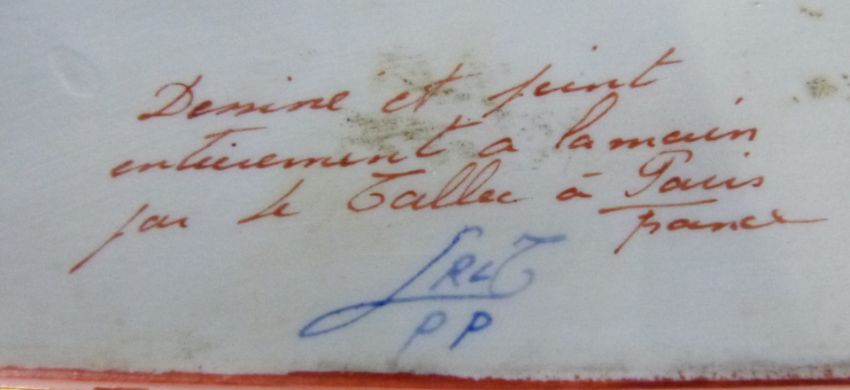 Dessiné et peint
entièrement a la main
par Le Tallec à Paris
France
LRLT
PP